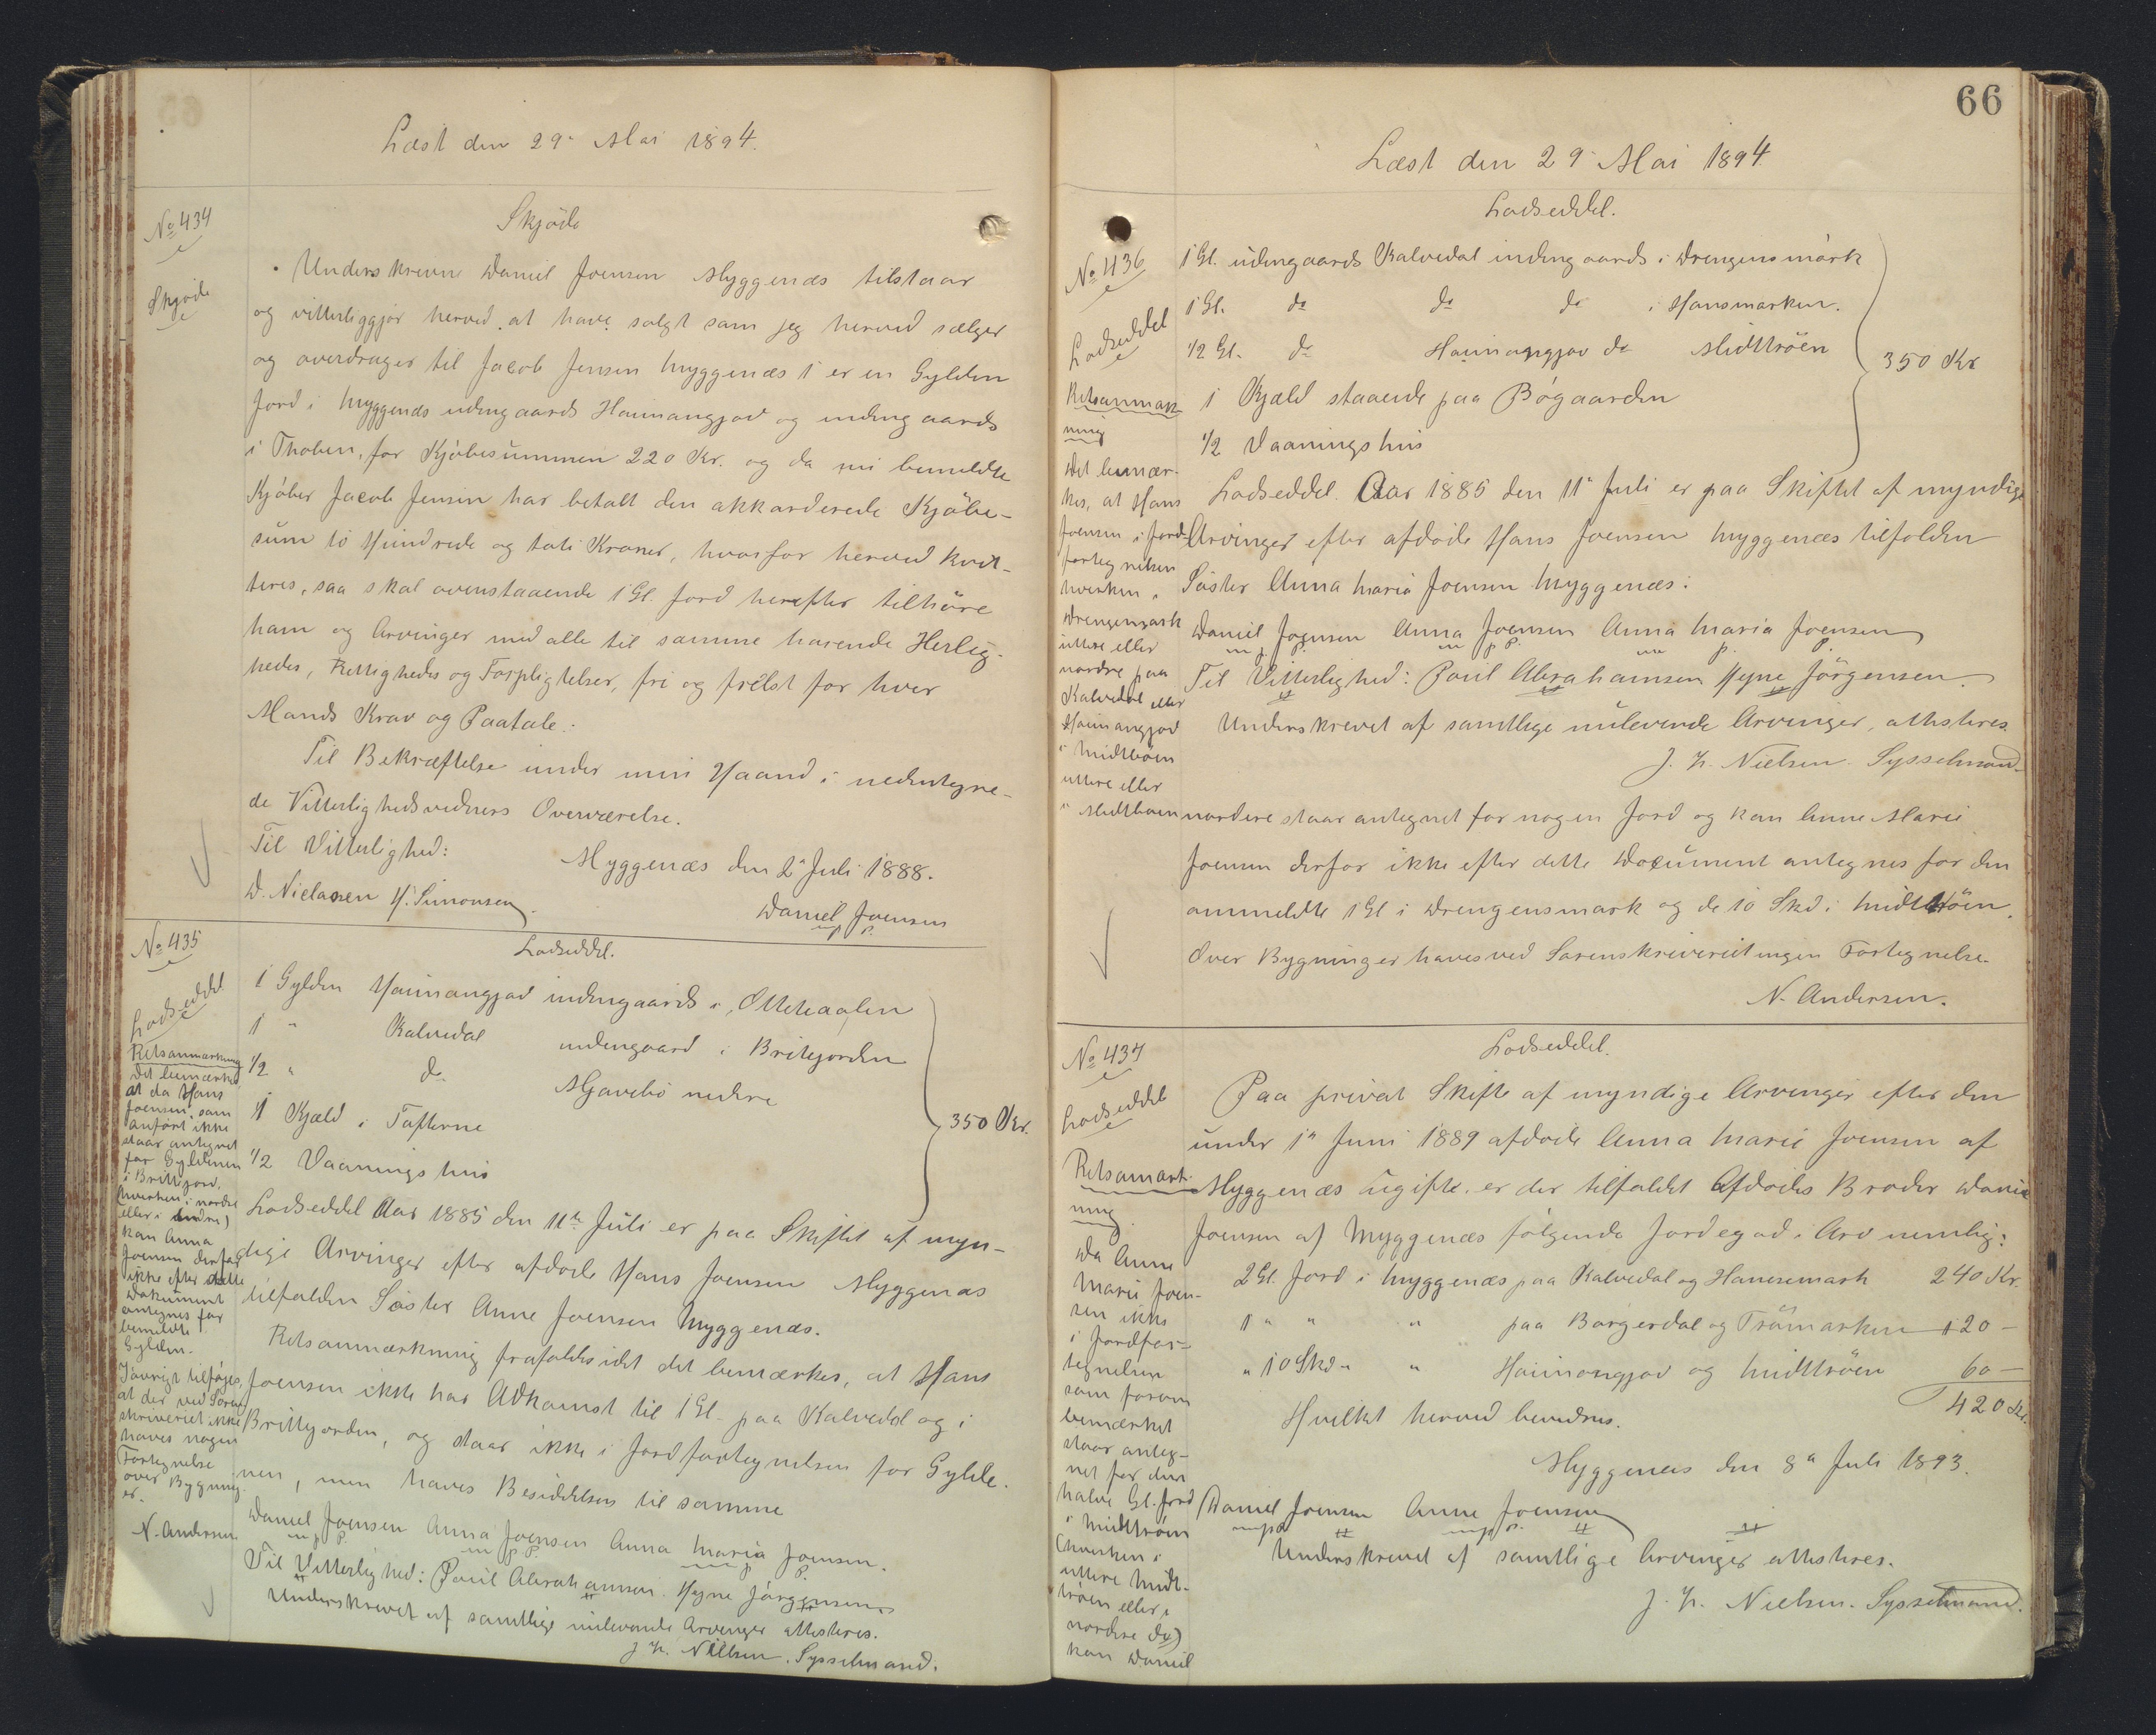 Læst den 29 Mai 1894.
No 434
Skjøde
Skjøde
Underskrevne Daniel Joensen Myggenæs tilstaar
og vitterliggjør herved at have solgt som jeg herved sælger
og overdrager til Jacob Jensen Myggenæs 1 er en Gylden
Jord i Myggenæs udengaards Haimangjov og indengaards
i Thoben, for Kjøbesummen 220 Kr. og da nu bemeldte
Kjøber Jacob Jensen har betalt den akkorderede Kjøbe-
sum to Hundrede og toti Kroner, hvorfor herved kvit-
teres, saa skal ovenstaaende 1 Gl. Jord herefter tilhøre
ham og Arvinger med alle til samme havende Herlig-
heder, Rettigheder og Forpligtelser, fri og frelst for hver
Mands Krav og Paatale.
Til Bekræftelse under min Haand i nedentegne-
de Vitterlighedsvidners Overværelse.
Til Vitterlighed:
Myggenæs den 2 Juli 1888.
D. Nielasen H. Simonsen.
Daniel Joensen
No 435
Lodseddel.
Lodseddel
1 Gylden Haimangjov indengaards i Otteteaalen
1 " Kalvedal indengaard i Britejorden
1/2 " do Mjavebø nedere
1 Kjæld i Tofterne
1/2 Vaaningshus
350 Kr.
Lodseddel Aar 1885 den 11te Juli er paa Skiftet af myn-
dige Arvinger efter afdøde Hans Joensen Myggenæs
tilfalden Søster Anne Joensen Myggenæs.
Retsanmærkning frafaldes idet det bemærkes, at Hans
Joensen ikke har Adkomst til 1 Gl. paa Kalvedal og i
Brittejorden, og staar ikke i Jordfortegnelsen for Gylde-
nen, men haves Besiddelsen til samme
Daniel Joensen Anna Joensen Anna Maria Joensen.
Til Vitterlighed: Poul Abrahamsen. Hejne Jørgensen
Underskrevet af samtlige nulevende Arvinger attesteres.
J. H. Nielsen. Sysselmand.
Retsanmærkning
Det bemærkes
at da Hans
Joensen, som
anført ikke
staar antegnet
for Gyldenen
i Brittejord,
(hverken i nordre
eller i søndre)
kan Anna
Joensen derfor
ikke efter dette
Dokument
antegnes for
bemeldte
Gylden.
Iøvrigt tilføjes,
at der ved Soren
skriveriet ikke
haves nogen
Fortegnelse
over Bygning
er.
N. Andersen
66
Læst den 29 Mai 1894
No 436
Lodseddel.
Lodseddel
1 Gl. udengaards Kalvedal indengaards i Drengensmark
1 Gl. do do do i Hansmarken.
1/2 Gl. do Haimangjov do Midttrøen
1 Kjæld staaende paa Bøgaarden
1/2 Vaaningshus
350 Kr
Lodseddel. Aar 1885 den 11te Juli er paa Skiftet af myndige
Arvinger efter afdøde Hans Joensen Myggenæs tilfalden
Søster Anna Maria Joensen Myggenæs.
Daniel Joensen Anna Joensen Anna Maria Joensen
Til Vitterlighed: Poul Abrahamsen Hejne Jørgensen
Underskrevet af samtlige nulevende Arvinger, attesteres.
J. H. Nielsen. Sysselmand
Retsanmærk-
ning
Det bemær-
kes, at Hans
Joensen i Jord-
fortegnelsen
hverken i
Drengemark
uttere eller
nordre paa
Kalvedal eller
Haimangjov
i Midttrøen
uttere eller
i Midttrøen nordere staar antegnet for nogen Jord og kan Anne Marie
Joensen derfor ikke efter dette Document antegnes for den
ommeldte 1 Gl i Drengensmark og de 10 Skd i Midttrøen.
Over Bygninger haves ved Sorenskriveriet ingen Fortegnelse.
N. Andersen.
No 437
Lodseddel.
Lodseddel
Paa privat Skifte af myndige Arvinger efter den
under 1ste Juni 1889 afdøde Anna Marie Joensen af
Myggenæs Ugifte, er der tilfaldet Afdødes Broder Daniel
Joensen af Myggenæs følgende Jordegod i Arv nemlig:
2 Gl. Jord i Myggenæs paa Kalvedal og Hansemark 240 Kr.
1 " " " paa Borgerdal og Trømarken 120 —
" 10 Skd " " Haimangjov og Midttrøen 60 —
420 Kr.
Hvilket herved bevidnes.
Myggenæs den 8de Juli 1893.
Daniel Joensen Anne Joensen
Underskrevet af samtlige Arvinger attesteres.
J. H. Nielsen. Sysselmand.
Retsanmærk-
ning
Da Anne
Marie Joen-
sen ikke
i Jordfor-
tegnelsen
som foroven
bemærket
staar anteg-
net for den
halve Gl. Jord
i Midttrøen
(hverken i
uttere Midt-
trøen eller i
nordere do)
kan Daniel